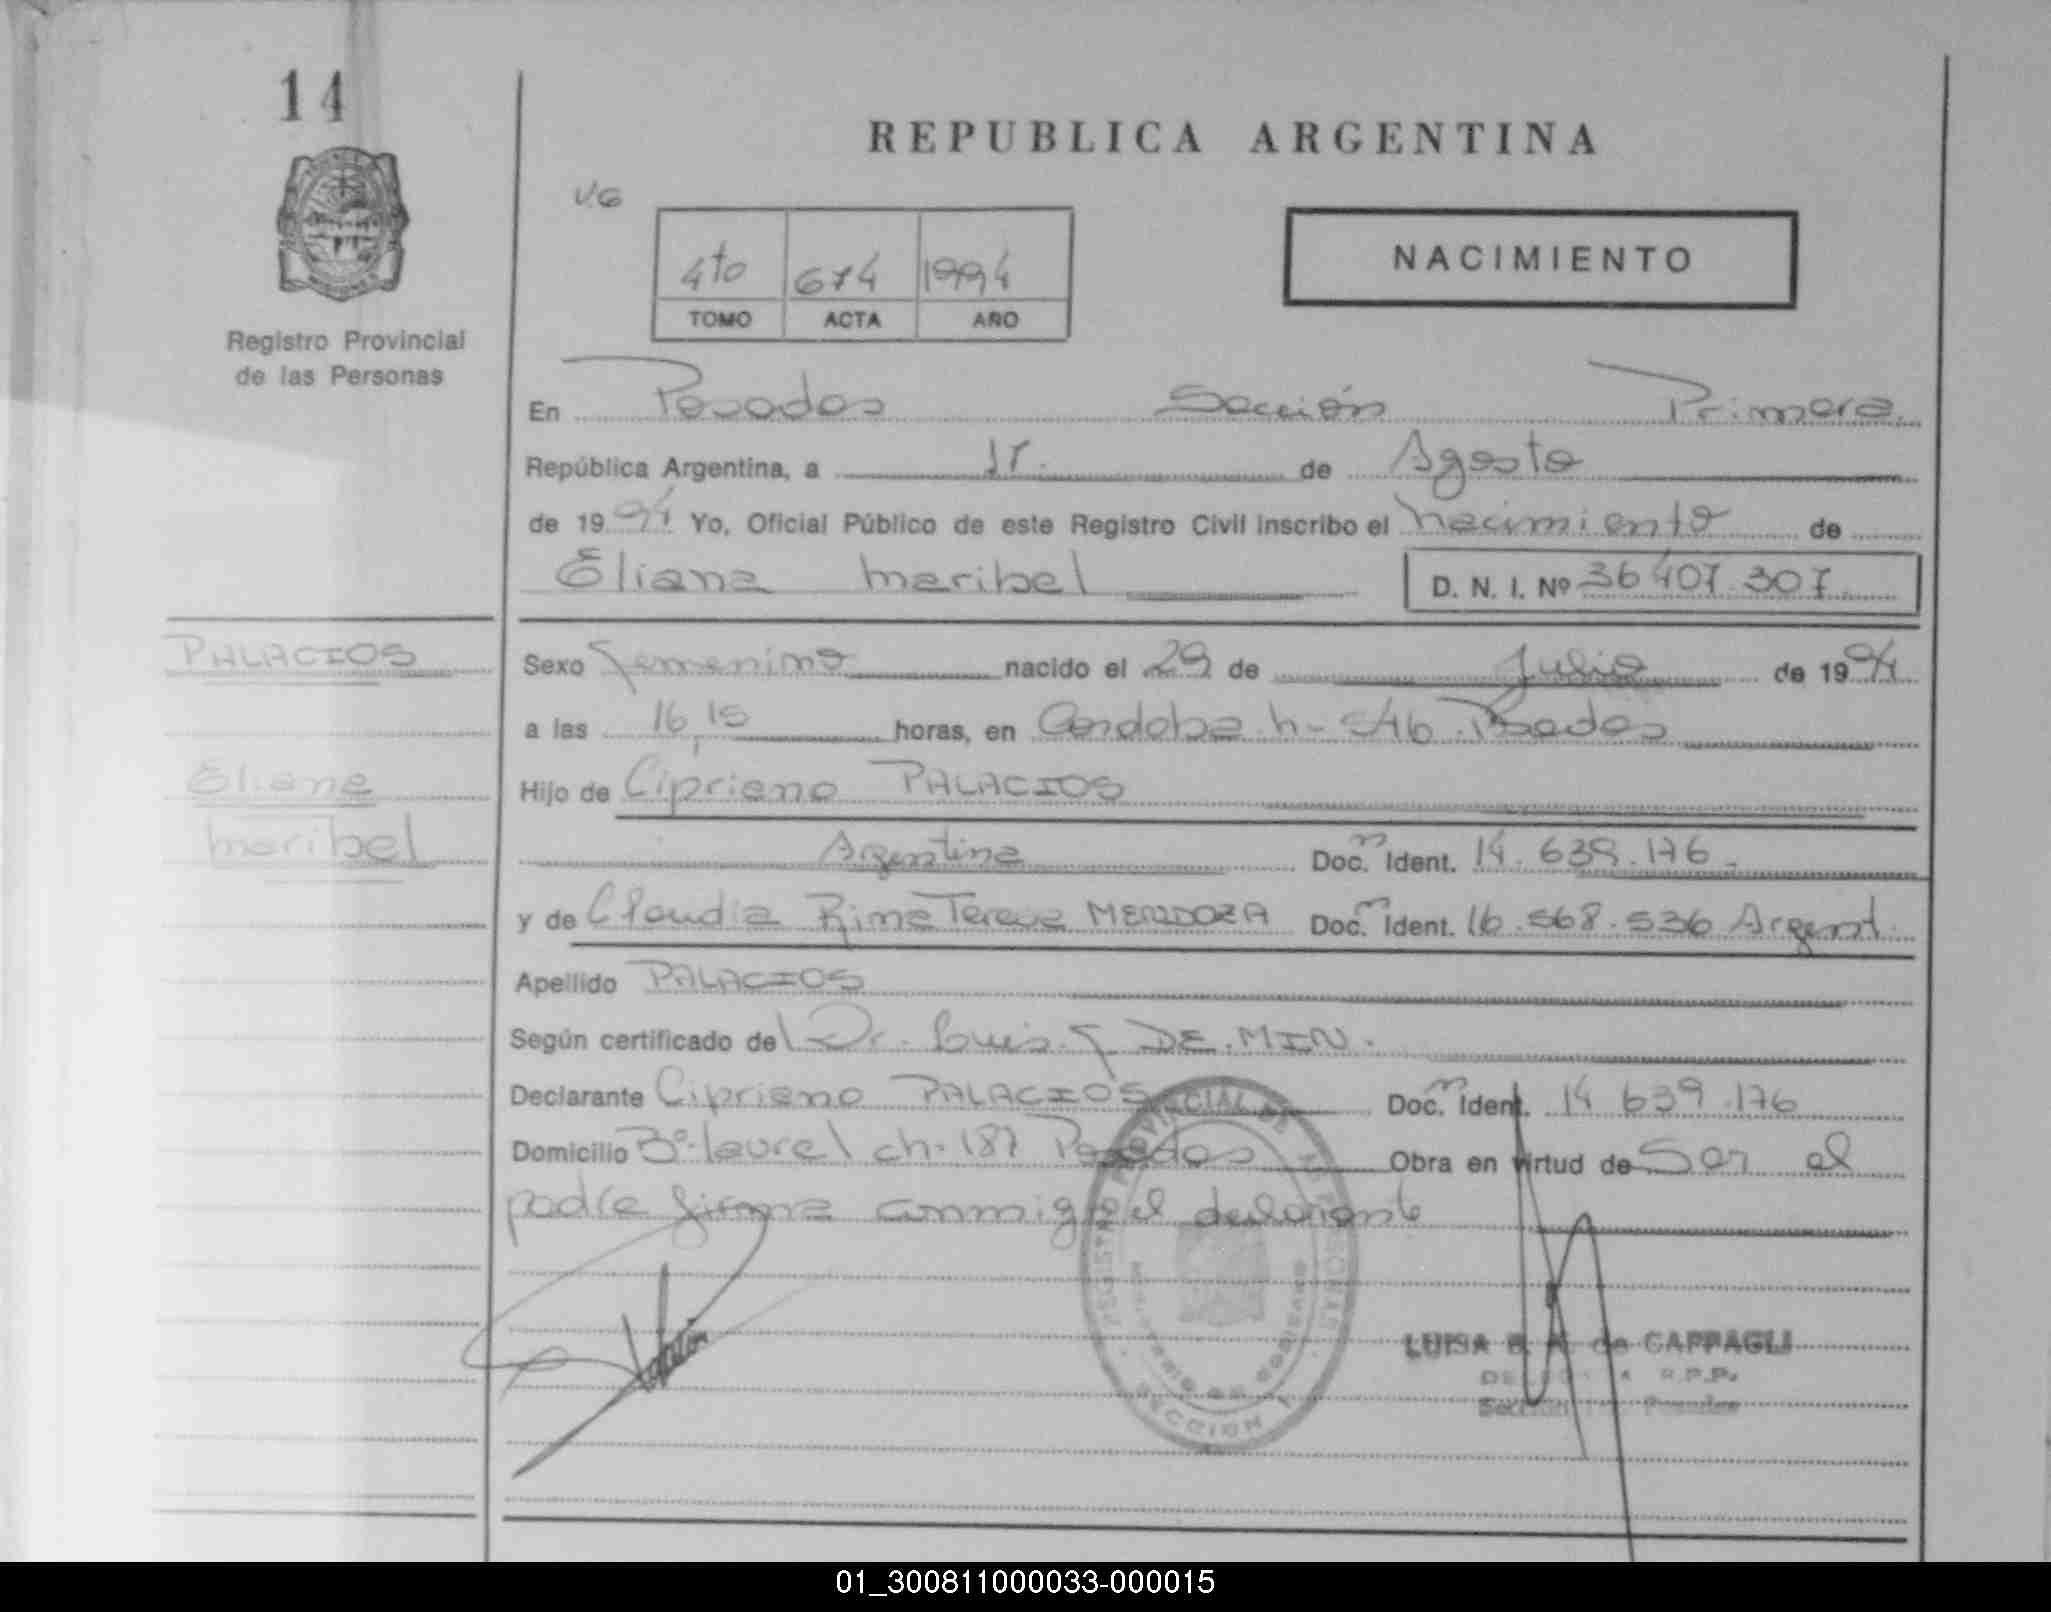 14
REPUBLICA ARGENTINA
V.G
NACIMIENTO
4to 674 1994
TOMO ACTA AÑO
Registro Provincial
de las Personas
En Posadas Sección Primera
República Argentina, a de Agosto
de 1994 Yo, Oficial Público de este Registro Civil inscribo el nacimiento de
Eliana maribel D. N. I. Nº 36 407.307
PALACIOS
Sexo femenino nacido el 29 de Julio de 1994
a las 16,15 horas, en Cordoba n- 546 Posadas
Eliana
Hijo de Cipriano PALACIOS
maribel
Argentina Doc. Ident. 14.639.176.
y de Claudia MENDOZA Doc. Ident. 16.568.536 Argent.
Apellido PALACIOS
Según certificado del Dr. Luis DE MIN.
Declarante Cipriano PALACIOS Doc. Ident. 14 639.176
Domicilio Bº laurel ch. 187 Posadas Obra en virtud de Ser el
padre firma conmigo el declarante
REGISTRO PROVINCIAL DE LAS PERSONAS
SECCION 1
LUISA de CAPPAGLI
DELEGADA R.P.P.
Sección Posadas
01_300811000033-000015